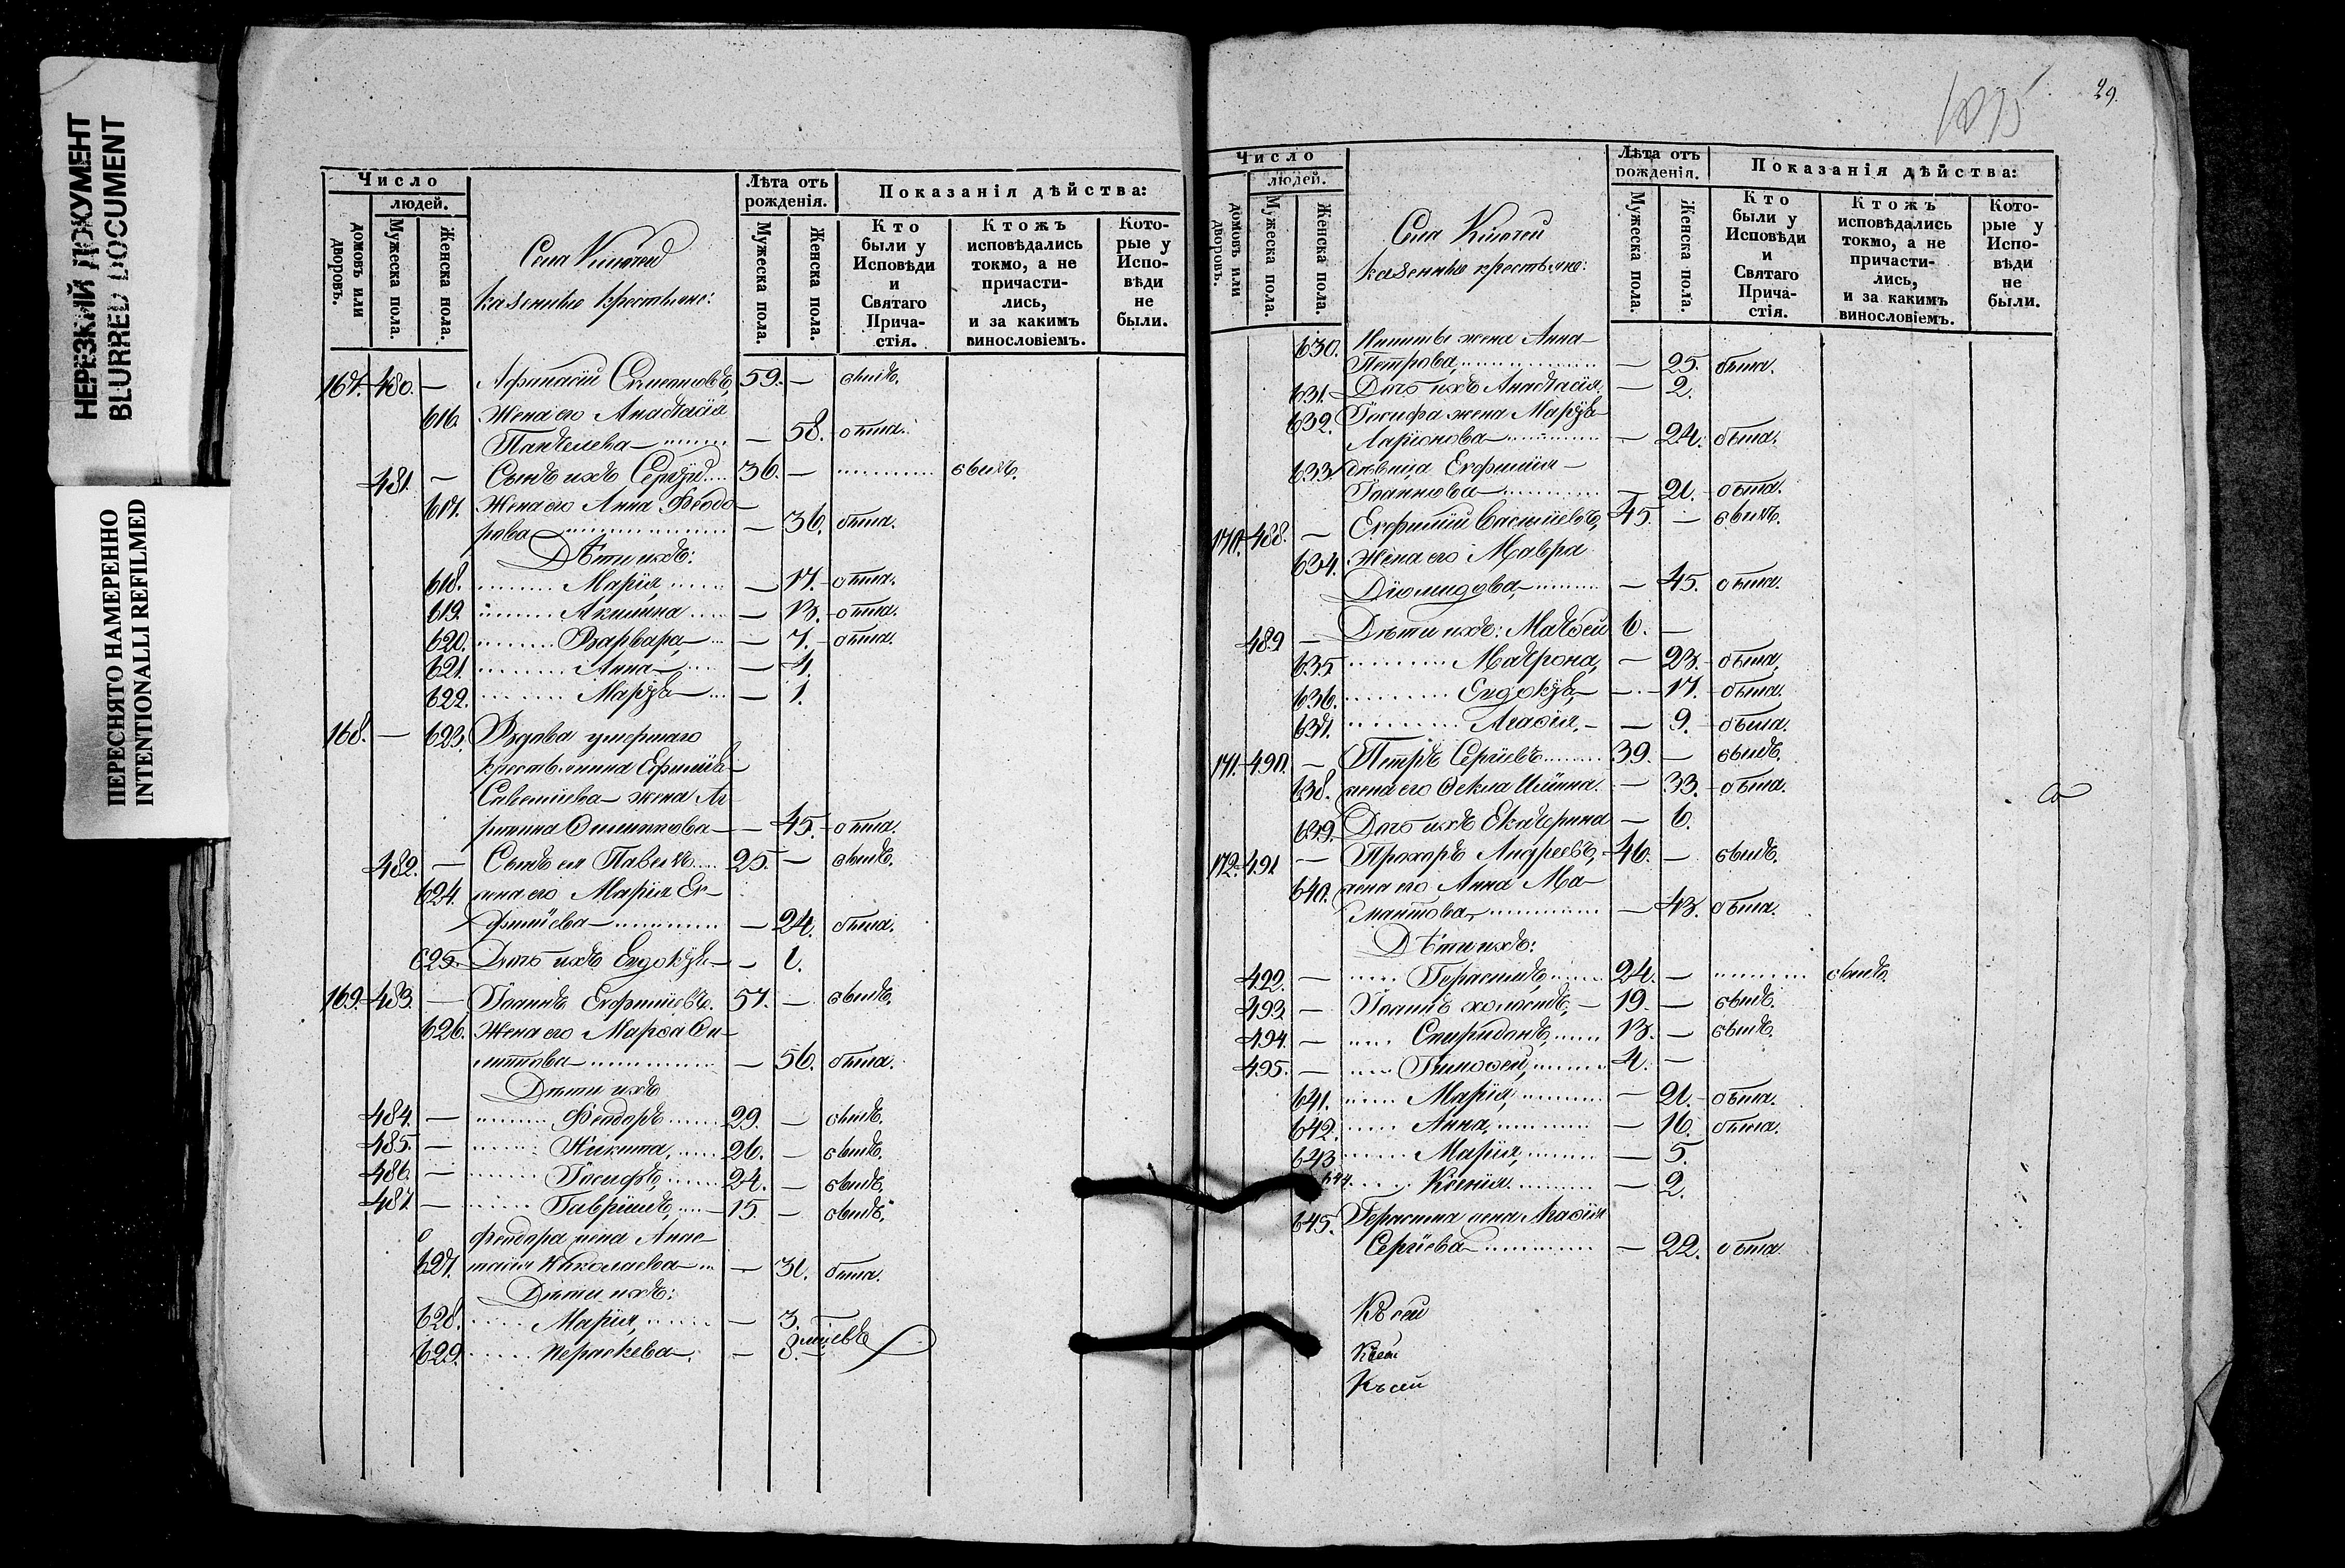 НЕРЕЗКИЙ ДОКУМЕНТ
BLURRED DOCUMENT
ПЕРЕСНЯТО НАМЕРЕННО
INTENTIONALLI REFILMED
Число
людей.
домовъ или дворовъ.
Мужеска пола.
Женска пола.
Села
казенные крестьяне:
Лѣта отъ рожденія.
Мужеска пола.
Женска пола.
Показанія дѣйства:
Кто были у Исповѣди и Святаго Прича-стія.
Ктожъ исповѣдались токмо, а не причасти-лись, и за какимъ винословіемъ.
Кото-рые у Испо-вѣди не были.
167. 480. — Афанасій Симеоновъ, 59. — былъ.
616. Жена его Анастасія
Пантелева — 58. была.
481. — Сынъ ихъ Сергѣй 36. — былъ.
617. Жена его Анна Феодо-
рова — 36. была.
Дѣти ихъ:
618. Марія, — 17. была.
619. Акилина — 13. была.
620. Варвара, — 7. была.
621. Анна — 4.
622. Марѳа — 1.
168. — 623. Вдова умершаго
крестьянина
Савельева жена Аг-
рипина — 45. была.
482. — Сынъ ея Павелъ 25. — былъ.
624. жена его Марія Ев-
фиміева — 24. была.
625. Дочь ихъ Евдокія — 1.
169. 483. — Іоаннъ Евфиміевъ. 57. — былъ.
626. Жена его Марѳа
— 56. была.
Дѣти ихъ
484. — Феодоръ 29. — былъ.
485. — Никита, 26. — былъ.
486. — Іосифъ, 24. — былъ.
487. — Гавріилъ, 15. — былъ.
Феодора жена Анас-
627. тасія Николаева — 31. была.
Дѣти ихъ:
628. Марія, — 3.
629. Параскева — 8.
29.
Число
людей.
домовъ или дворовъ.
Мужеска пола.
Женска пола.
Села
казенные крестьяне:
Лѣта отъ рожденія.
Мужеска пола.
Женска пола.
Показанія дѣйства:
Кто были у Исповѣди и Святаго Прича-стія.
Ктожъ исповѣдались токмо, а не причасти-лись, и за какимъ винословіемъ.
Кото-рые у Испо-вѣди не были.
630. Никиты жена Анна
Петрова, — 25. была.
631. Дочь ихъ Анастасія. — 2.
632. Іосифа жена Марѳа
Ларіонова — 24. была.
633. дѣвица Евфимія
Іоаннова — 21. была.
170. 488. — Евфимій Васильевъ, 45. — былъ.
634. Жена его Мавра
Діомидова, — 45. была.
489. — Дѣти ихъ: Матѳей 6. —
635. Матрона, — 23. была.
636. Евдокія, — 17. была.
637. Агафія, — 9. была.
171. 490. — Петръ Сергіевъ 39. — былъ.
638. жена его Ѳекла Ильина. — 33. была.
639. Дочь ихъ Екатерина — 6.
172. 491 — Прохоръ Андреевъ, 46. — былъ.
640. жена его Анна Ма-
— 43. была.
Дѣти ихъ:
492. — Герасимъ, 24. — былъ.
493. — Іоаннъ холостъ, 19. — былъ.
494. — Спиридонъ, 13. — былъ.
495. — Тимоѳей, 4. —
641. Марія, — 21. была.
642. Анна, — 16. была.
643 Марія, — 5.
644. Ксенія. — 2.
645. Герасима жена Агафія
Сергіева — 22. была
Къ сей
Къ сей
Къ сей